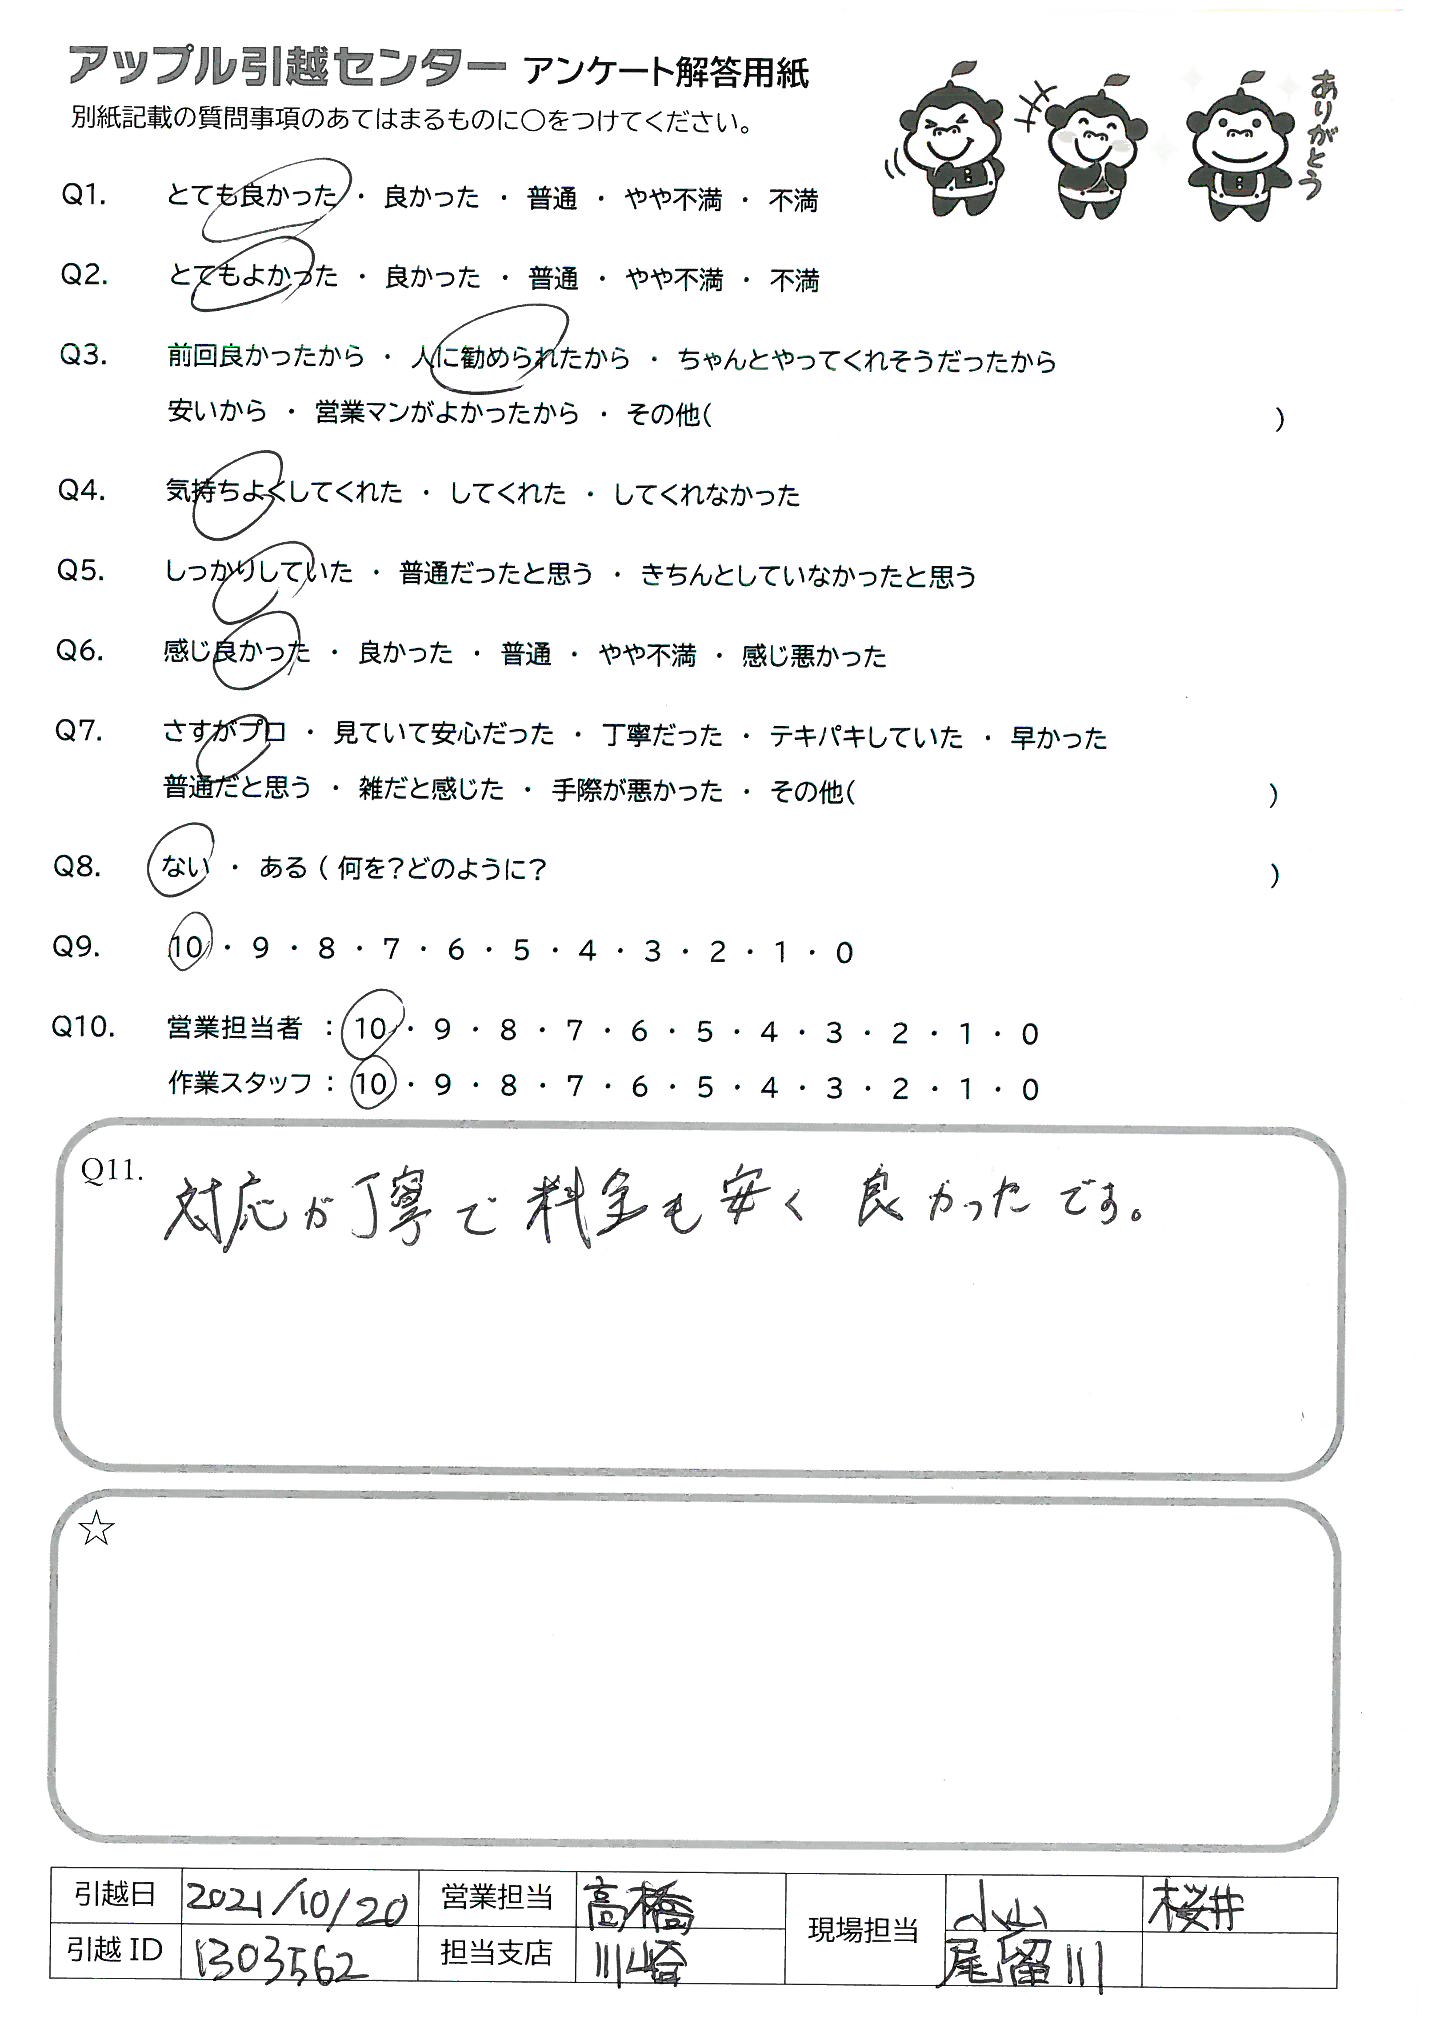 アップル引越センター アンケート解答用紙
別紙記載の質問事項のあてはまるものに○をつけてください。
ありがとう
Q1. とても良かった ・ 良かった ・ 普通 ・ やや不満 ・ 不満
Q2. とてもよかった ・ 良かった ・ 普通 ・ やや不満 ・ 不満
Q3. 前回良かったから ・ 人に勧められたから ・ ちゃんとやってくれそうだったから
安いから ・ 営業マンがよかったから ・ その他( )
Q4. 気持ちよくしてくれた ・ してくれた ・ してくれなかった
Q5. しっかりしていた ・ 普通だったと思う ・ きちんとしていなかったと思う
Q6. 感じ良かった ・ 良かった ・ 普通 ・ やや不満 ・ 感じ悪かった
Q7. さすがプロ ・ 見ていて安心だった ・ 丁寧だった ・ テキパキしていた ・ 早かった
普通だと思う ・ 雑だと感じた ・ 手際が悪かった ・ その他( )
Q8. ない ・ ある ( 何を?どのように? )
Q9. 10 ・ 9 ・ 8 ・ 7 ・ 6 ・ 5 ・ 4 ・ 3 ・ 2 ・ 1 ・ 0
Q10. 営業担当者 : 10 ・ 9 ・ 8 ・ 7 ・ 6 ・ 5 ・ 4 ・ 3 ・ 2 ・ 1 ・ 0
作業スタッフ : 10 ・ 9 ・ 8 ・ 7 ・ 6 ・ 5 ・ 4 ・ 3 ・ 2 ・ 1 ・ 0
Q11. 対応が丁寧で料金も安く良かったです。
☆
引越日 2021/10/20 営業担当 高橋 現場担当 小山 桜井
引越ID 1303562 担当支店 川崎 尾留川